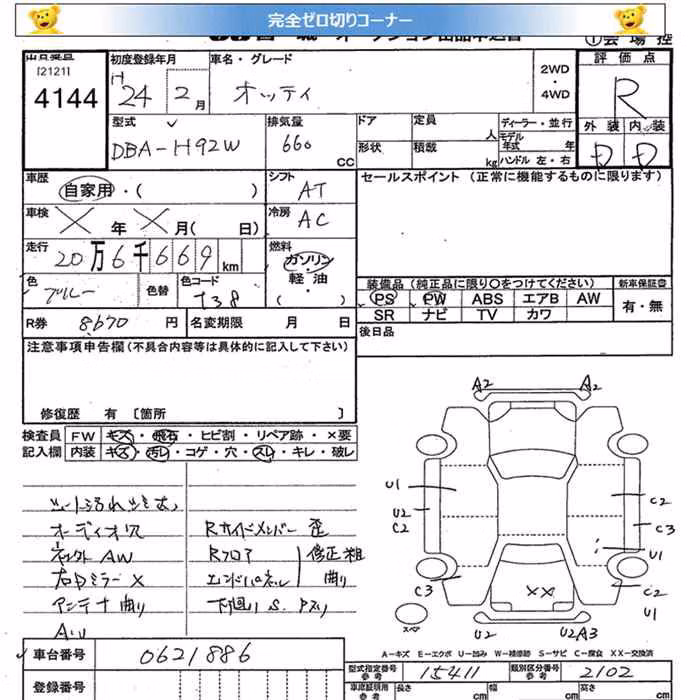 完全ゼロ切りコーナー
出品番号
[2121]
4144
初度登録年月
H 24 2 月
車名・グレード
オッティ
2WD
・
4WD
①会場控
評価点
R
外装 内装
D D
型式
DBA-H92W
排気量
660 CC
ドア
定員
人
形状
積載
kg
ディーラー・並行
モデル年式 年
ハンドル 左・右
車歴
自家用・( )
シフト
AT
セールスポイント (正常に機能するものに限ります)
車検
X 年 X 月( 日)
冷房
AC
走行
20万6千669 km
燃料
ガソリン
・
軽油
( )
色
ブルー
色替
色コード
T38
装備品(純正品に限り○をつけてください)
新車保証書
PS PW ABS エアB AW
SR ナビ TV カワ
有・無
R券 8,670 円
名変期限 月 日
後日品
注意事項申告欄(不具合内容等は具体的に記入して下さい)
修復歴 有 [箇所 ]
検査員
記入欄
FW キズ・飛石・ヒビ割・リペア跡・×要
内装 キズ・汚レ・コゲ・穴・スレ・キレ・破レ
オーディオ穴
Rサイドメンバー 歪
AW
Rフロア
修正粗
右ドミラー X
エンドパネル
曲り
アンテナ曲り
下廻り S.
A2 A2
U1
U2
C2
C2
C3
U1
C3
XX
C2
U1
スペア
U2
U2A3
A-キズ E-エクボ U-凹み W-補修跡 S-サビ C-腐食 XX-交換済
車台番号
0621886
登録番号
型式指定番号
参考
15411
類別区分番号
参考
2102
車庫証明用
参考
長さ cm
幅 cm
高さ cm